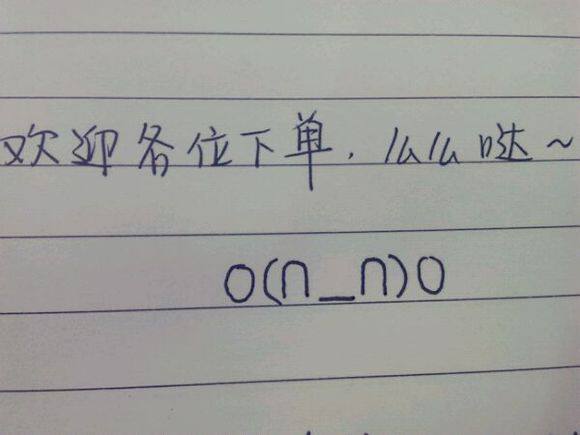 欢迎各位下单，么么哒~
O(∩_∩)O